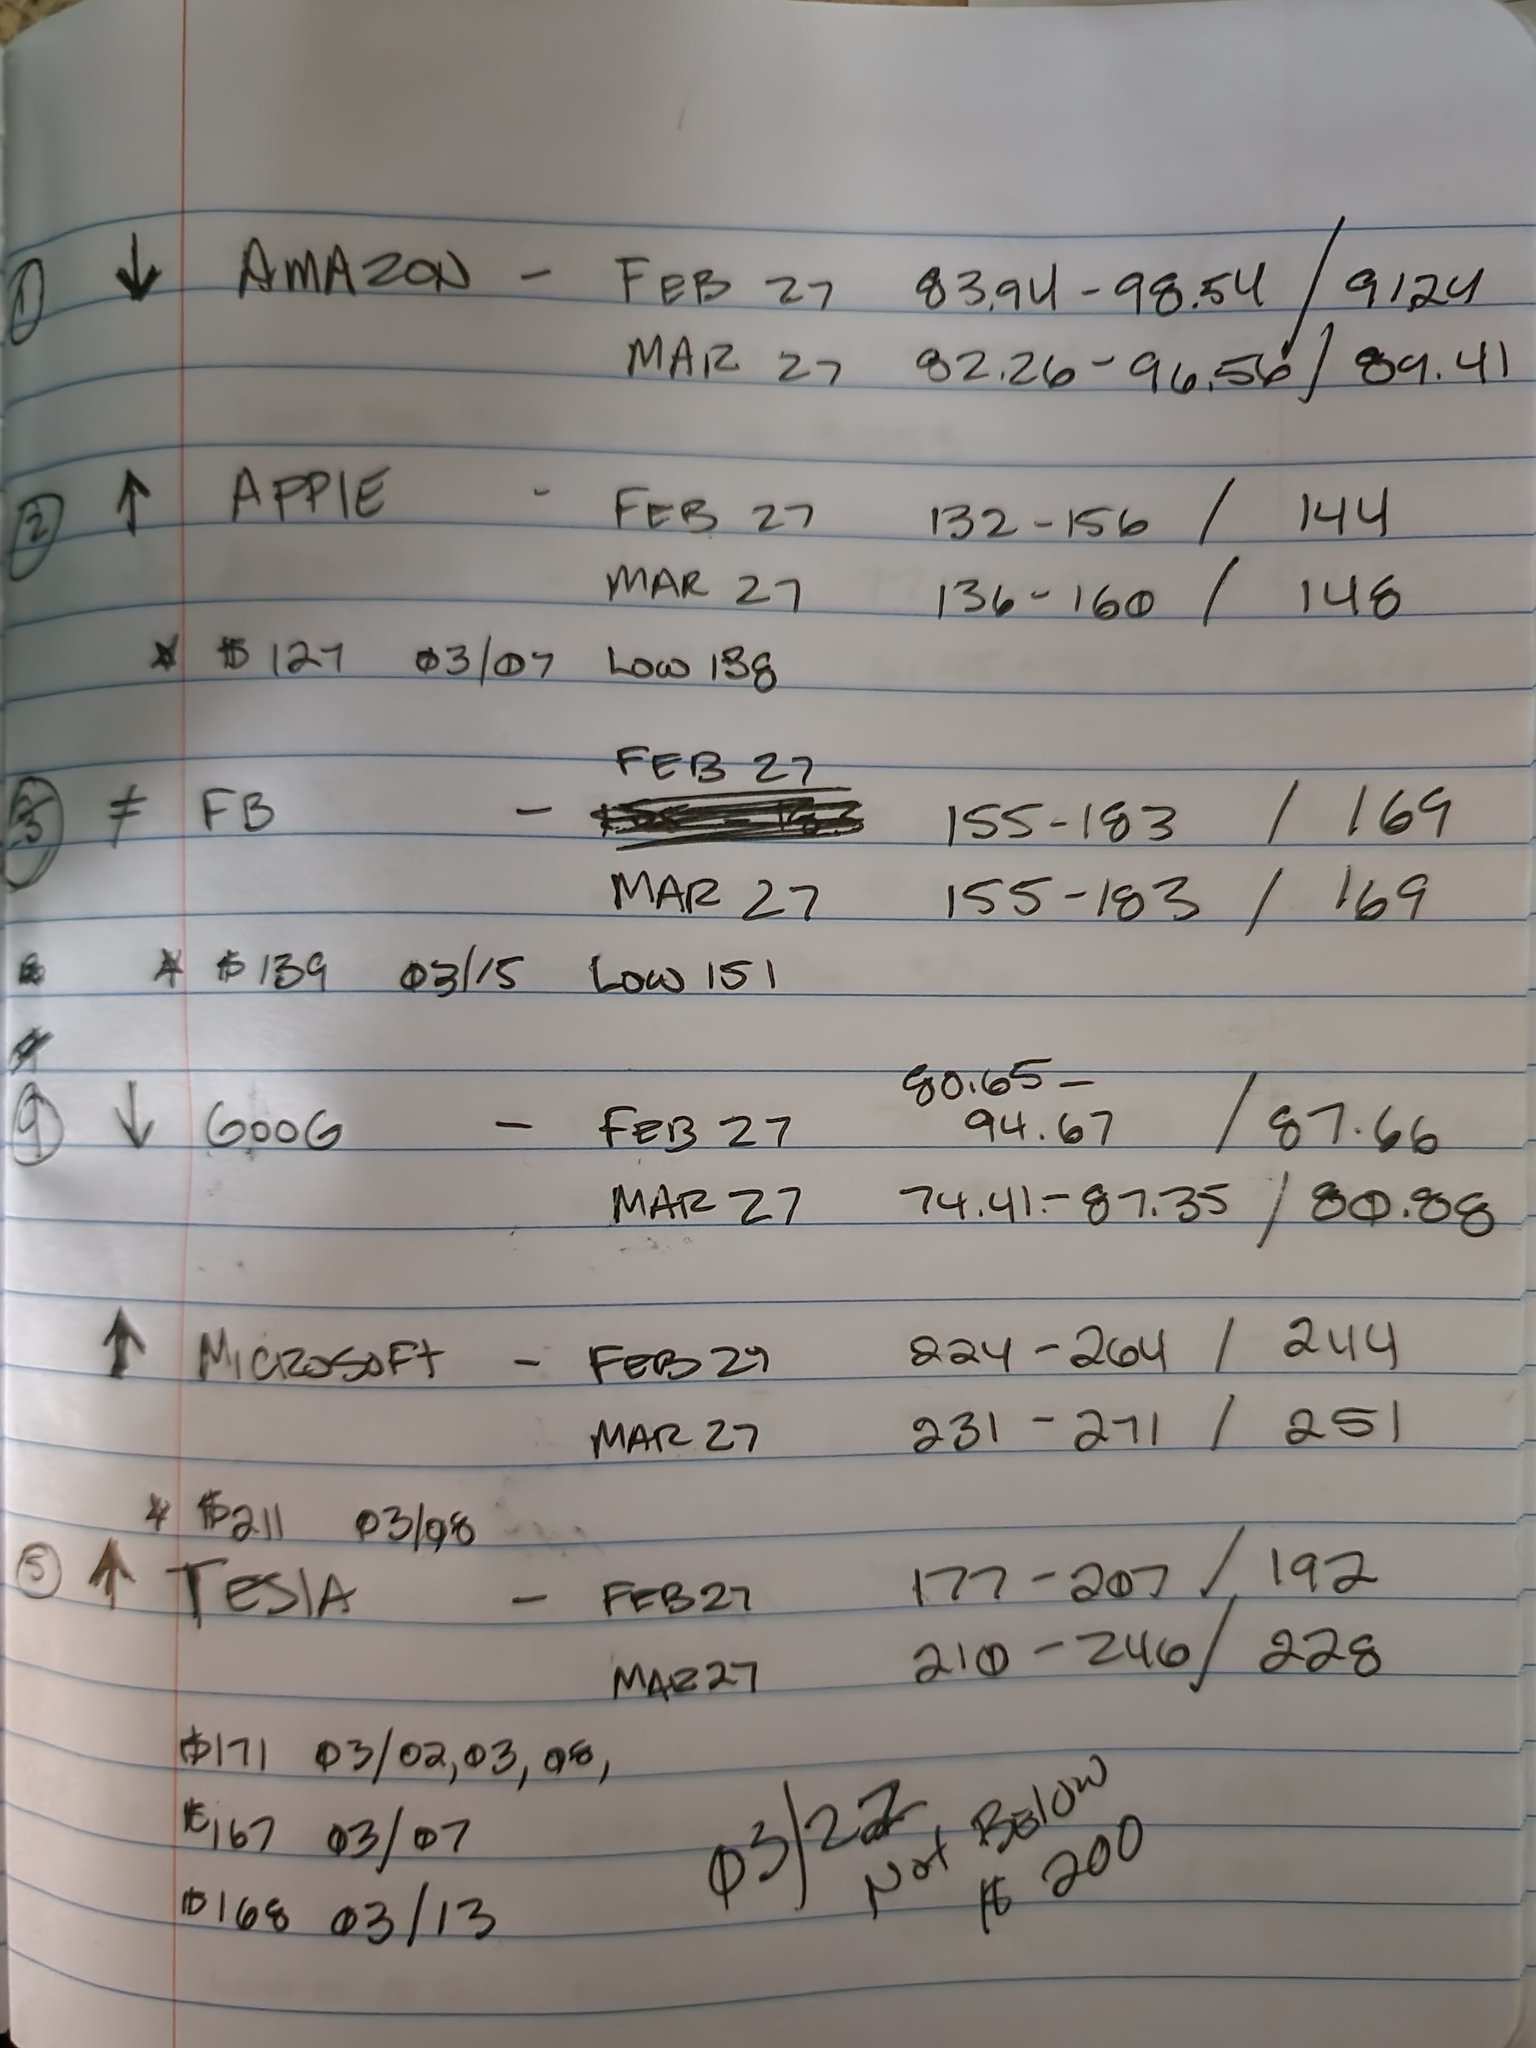 ① ↓ AMAZON - FEB 27 83.94 - 98.54 / 91.24
MAR 27 82.26 - 96.56 / 89.41
② ↑ APPlE - FEB 27 132 - 156 / 144
MAR 27 136 - 160 / 148
* $127 03/07 Low 138
③ ≠ FB - FEB 27 155 - 183 / 169
MAR 27 155 - 183 / 169
* $139 03/15 Low 151
④ ↓ GOOG - FEB 27 80.65 -
94.67 / 87.66
MAR 27 74.41 - 87.35 / 80.88
↑ MICROSOFt - FEB 27 224 - 264 / 244
MAR 27 231 - 271 / 251
* $211 03/08
⑤ ↑ TESlA - FEB 27 177 - 207 / 192
MAR 27 210 - 246 / 228
$171 03/02, 03, 08,
$167 03/07
$168 03/13
03/22
Not Below
$200